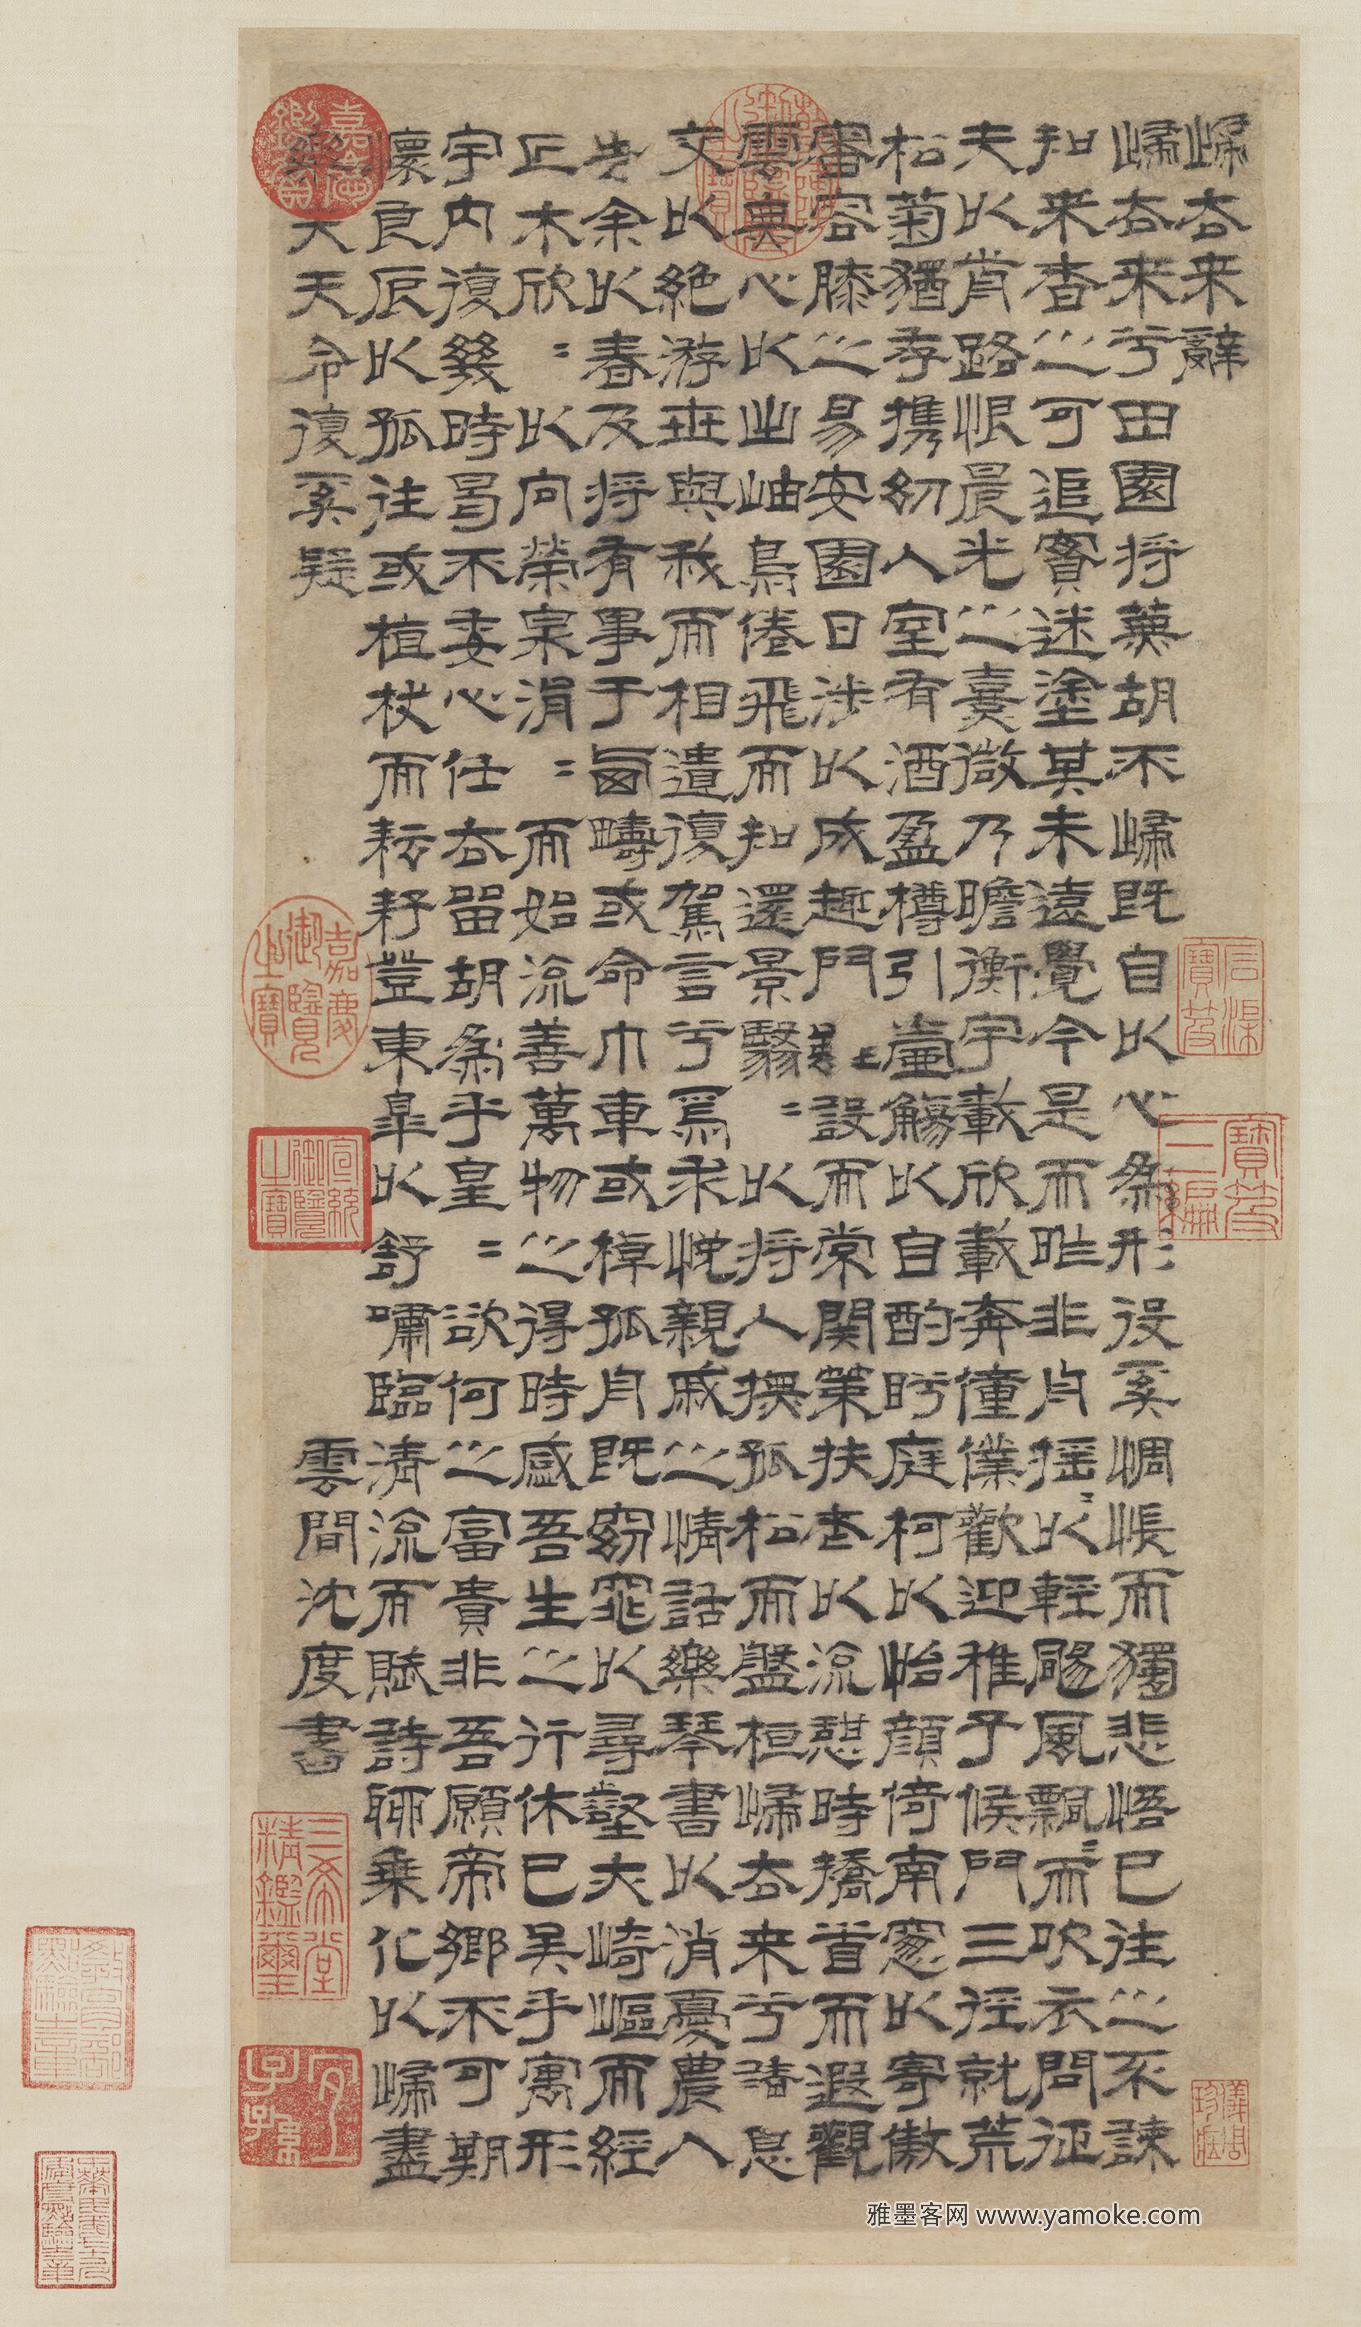 歸去来辭
歸去来兮田園将蕪胡不歸既自以心為形役奚惆悵而獨悲悟已往之不諫
知来者之可追實迷塗其未遠覺今是而昨非舟揺〻以輕颺風飄〻而吹衣問征
夫以前路恨晨光之熹微乃瞻衡宇載欣載奔僮僕歡迎稚子候門三徑就荒
松菊猶存携幼入室有酒盈樽引壺觴以自酌眄庭柯以怡顔倚南窓以寄傲
審容膝之易安園日涉以成趣門雖設而常関策扶老以流憩時矯首而遐觀
雲無心以出岫鳥倦飛而知還景翳〻以将入撫孤松而盤桓歸去来兮請息
交以絶游世與我而相遺復駕言兮焉求悦親戚之情話樂琴書以消憂農人
告余以春及将有事于西疇或命巾車或棹孤舟既窈窕以尋壑亦崎嶇而經
丘木欣〻以向榮泉涓〻而始流善萬物之得時感吾生之行休已矣乎寓形
宇内復幾時曷不委心任去留胡為乎皇〻欲何之富貴非吾願帝鄉不可期
懷良辰以孤往或植杖而耘耔登東皐以舒嘯臨清流而賦詩聊乗化以歸盡
樂夫天命復奚疑
雲間沈度書
石渠寶笈
寶笈三編
嘉慶鑑賞
嘉慶御覽之寶
宣統御覽之寶
三希堂精鑑璽
宜子孫
雅墨客网 www.yamoke.com